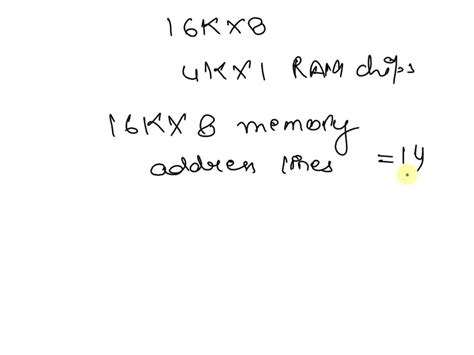 16K×8
4K×1 RAM chips
16K×8 memory
address lines =14